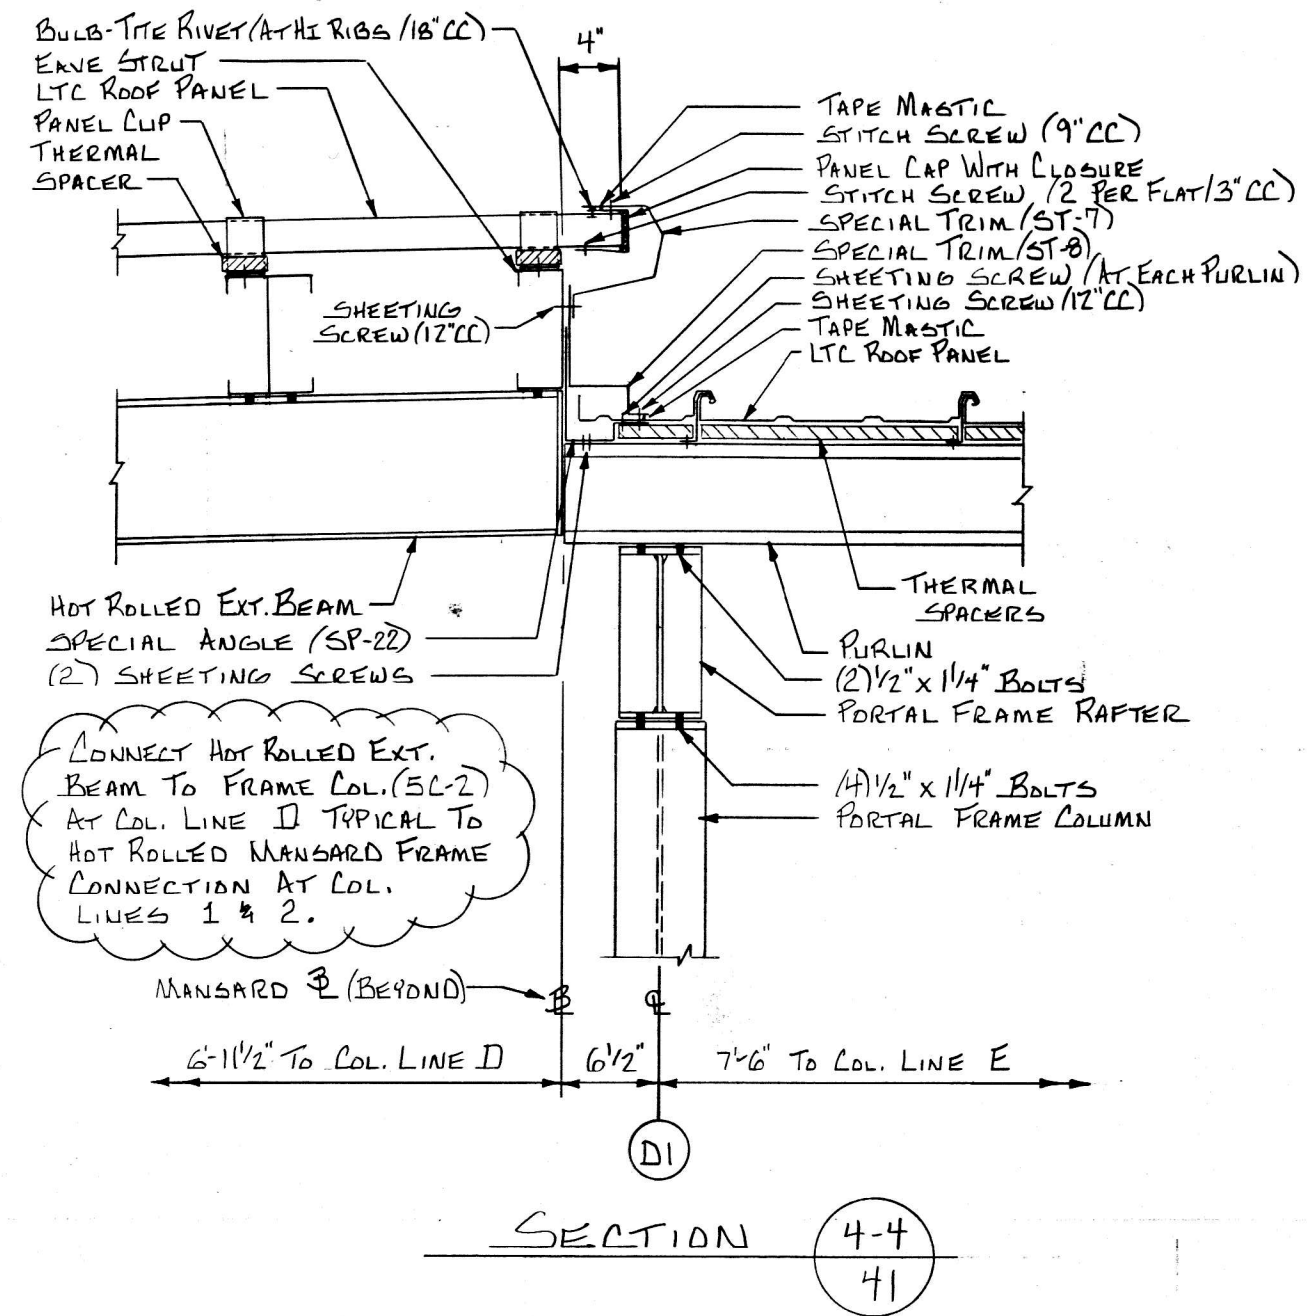 BULB-TITE RIVET (AT HI RIBS / 18" CC)
EAVE STRUT
LTC ROOF PANEL
PANEL CLIP
THERMAL
SPACER
4"
TAPE MASTIC
STITCH SCREW (9" CC)
PANEL CAP WITH CLOSURE
STITCH SCREW (2 PER FLAT / 3" CC)
SPECIAL TRIM (ST-7)
SPECIAL TRIM (ST-8)
SHEETING SCREW (AT EACH PURLIN)
SHEETING SCREW (12" CC)
TAPE MASTIC
LTC ROOF PANEL
SHEETING
SCREW (12" CC)
HOT ROLLED EXT. BEAM
SPECIAL ANGLE (SP-22)
(2) SHEETING SCREWS
THERMAL
SPACERS
PURLIN
(2) 1/2" x 1 1/4" BOLTS
PORTAL FRAME RAFTER
(4) 1/2" x 1 1/4" BOLTS
PORTAL FRAME COLUMN
CONNECT HOT ROLLED EXT.
BEAM TO FRAME COL. (5C-2)
AT COL. LINE D TYPICAL TO
HOT ROLLED MANSARD FRAME
CONNECTION AT COL.
LINES 1 & 2.
MANSARD BL (BEYOND)
BL
CL
6'-11 1/2" TO COL. LINE D
6 1/2"
7'-6" TO COL. LINE E
D1
SECTION
4-4
41